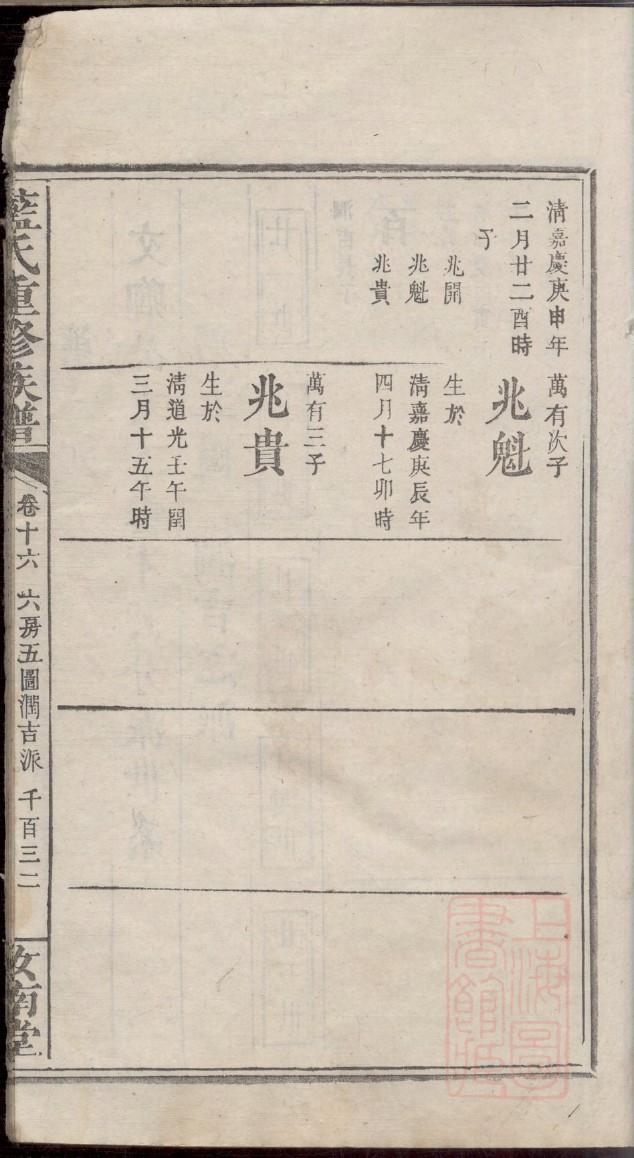 清嘉慶庚申年
二月廿二酉時
子
兆開
兆魁
兆貴
萬有次子
兆魁
生於
清嘉慶庚辰年
四月十七卯時
萬有三子
兆貴
生於
清道光壬午閏
三月十五午時
藍氏重修族譜
卷十六 六房五圖潤吉派 千百三二
汝南堂
上海圖
書館藏